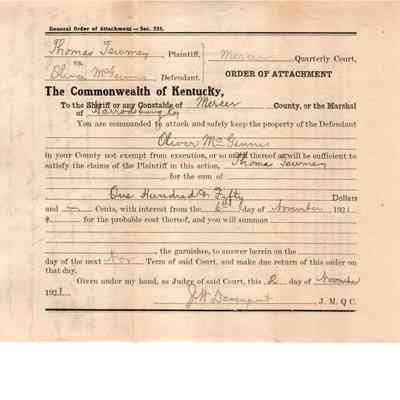 General Order of Attachment—Sec. 225.
Thomas Plaintiff, Mercer Quarterly Court,
vs.
Oliver McGinnis, Defendant. ORDER OF ATTACHMENT
The Commonwealth of Kentucky,
To the Sheriff or any Constable of Mercer County, or the Marshal
of Harrodsburg Ky
You are commanded to attach and safely keep the property of the Defendant
Oliver McGinnis
in your County not exempt from execution, or so much thereof as will be sufficient to
satisfy the claims of the Plaintiff in this action, Thomas
for the sum of
One Hundred & Fifty Dollars
and — Cents, with interest from the day of November 192
for the probable cost thereof, and you will summon
the garnishee, to answer herein on the
day of the next Nov Term of said Court, and make due return of this order on
that day.
Given under my hand, as Judge of said Court, this 2 day of November
1921 J. H. Davenport J. M. Q. C.